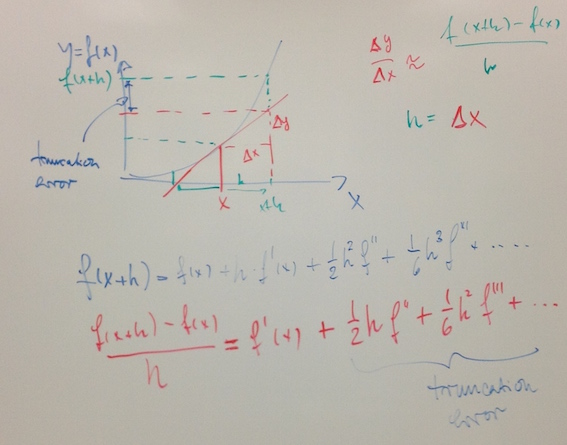 y=f(x)
f(x+h)
truncation
error
Δy
Δx
h
x
x+h
x
Δy/Δx ≈ (f(x+h)-f(x))/h
h = Δx
f(x+h) = f(x) + h·f'(x) + 1/2 h² f'' + 1/6 h³ f''' + ....
(f(x+h) - f(x))/h = f'(x) + 1/2 h f'' + 1/6 h² f''' + ...
truncation
error